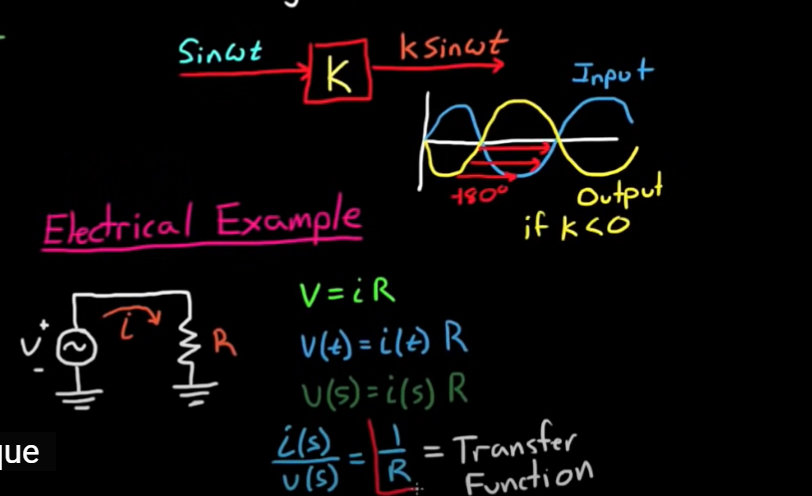 Sinωt
K
K sinωt
Input
-180°
Output
if K<0
Electrical Example
V
+
-
i
R
V = i R
V(t) = i(t) R
V(s) = i(s) R
i(s)/V(s) = 1/R = Transfer
Function